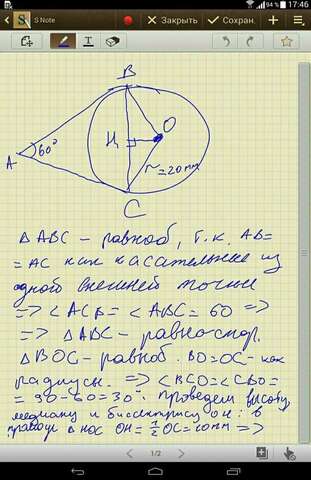 17:46
94 %
S Note
Закрыть
Сохран.
B
O
H
A
60°
r=20mm
C
△ ABC – равноб, т.к. AB=
=AC как касательные из
одной внешней точки
=> <ACB = <ABC = 60 =>
=> △ABC – равностор.
△BOC – равноб. BO=OC – как
радиусы. => <BCO=<CBO=
= 90-60=30°. проведем высоту,
медиану и биссектрису OH: в
△ HOC OH = 1/2 OC = 10mm =>
1/2